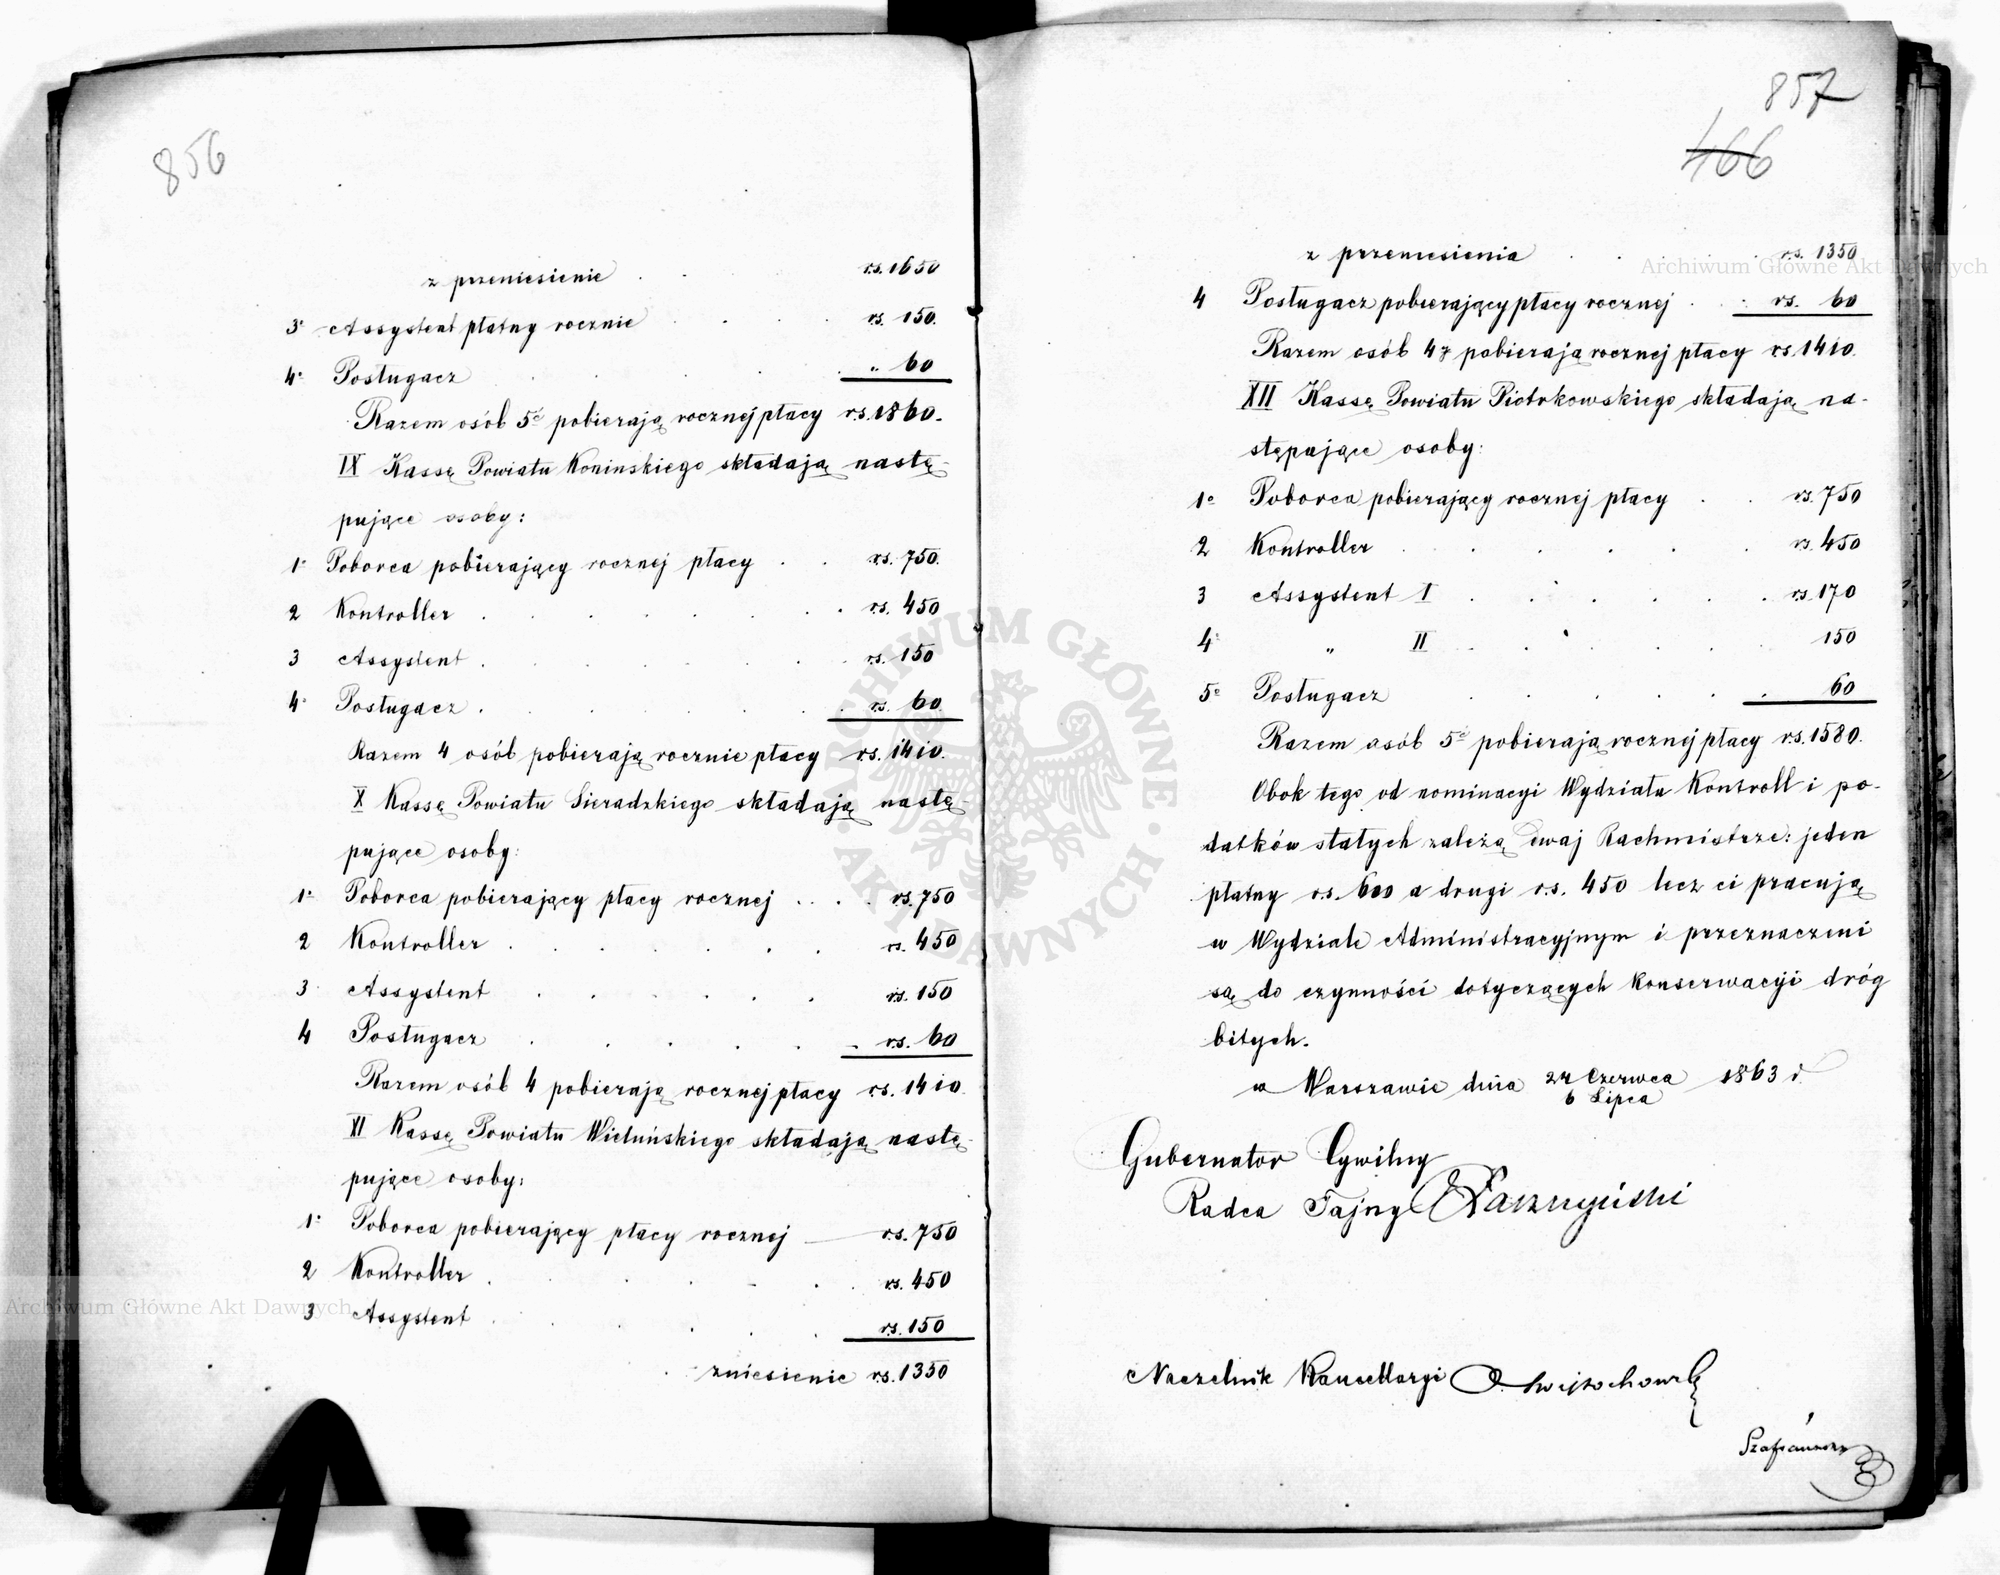 856
z przeniesienie rs. 1650
3° Assystent płatny rocznie rs. 150.
4° Posługacz „ 60
Razem osób 5ć pobierają rocznej płacy rs. 1860.
IX Kassę Powiatu Konińskiego składają nastę-
pujące osoby:
1° Poborca pobierający rocznej płacy rs. 750.
2 Kontroller rs. 450
3 Assystent rs. 150
4° Posługacz rs. 60
Razem 4 osób pobierają rocznie płacy rs. 1410.
X Kassę Powiatu Sieradzkiego składają nastę-
pujące osoby:
1° Poborca pobierający płacy rocznej rs. 750
2 Kontroller rs. 450
3 Assystent rs. 150
4 Posługacz rs. 60
Razem osób 4 pobierają rocznej płacy rs. 1410.
XI Kassę Powiatu Wieluńskiego składają nastę-
pujące osoby:
1° Poborca pobierający płacy rocznej rs. 750
2 Kontroller rs. 450
3 Assystent rs. 150
zniesienie rs. 1350
857
466
z przeniesienia rs. 1350
4 Posługacz pobierający płacy rocznej rs. 60
Razem osób 4 pobierają rocznej płacy rs. 1410.
XII Kassę Powiatu Piotrkowskiego składają na-
stępujące osoby:
1° Poborca pobierający rocznej płacy rs. 750
2 Kontroller rs. 450
3 Assystent I rs. 170
4° „ II 150
5° Posługacz 60
Razem osób 5ć pobierają rocznej płacy rs. 1580.
Obok tego od nominacyi Wydziału Kontroll i po-
datków stałych zależą dwaj Rachmistrze: jeden
płatny rs. 600 a drugi rs. 450 lecz ci pracują
w Wydziale Administracyjnym i przeznaczeni
są do czynności dotyczących konserwacyi dróg
bitych.
w Warszawie dnia 24 Czerwca 1863 r.
6 Lipca
Gubernator Cywilny
Radca Tajny Łaszczyński
Naczelnik Kancellaryi
Archiwum Główne Akt Dawnych
Archiwum Główne Akt Dawnych
ARCHIWUM GŁÓWNE
AKT DAWNYCH